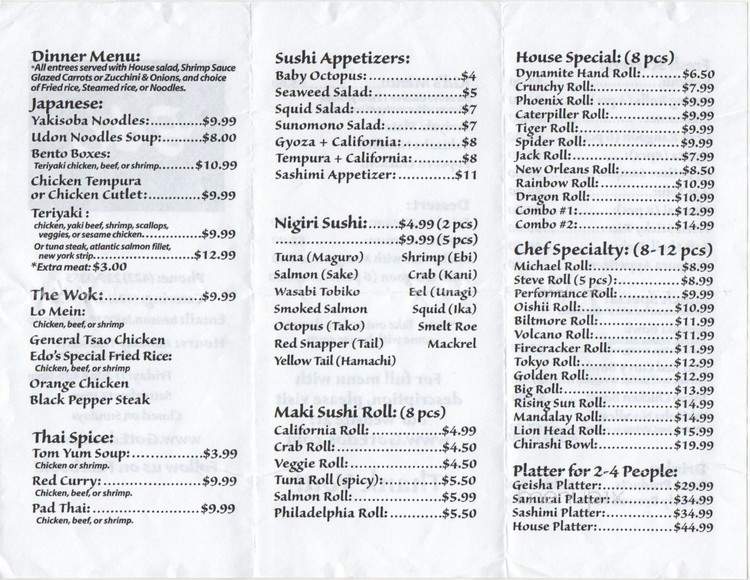 Dinner Menu:
*All entrees served with House salad, Shrimp Sauce
Glazed Carrots or Zucchini & Onions, and choice
of Fried rice, Steamed rice, or Noodles.
Japanese:
Yakisoba Noodles:............$9.99
Udon Noodles Soup:.........$8.00
Bento Boxes:
Teriyaki chicken, beef, or shrimp.........$10.99
Chicken Tempura
or Chicken Cutlet:.............$9.99
Teriyaki :
chicken, yaki beef, shrimp, scallops,
veggies, or sesame chicken..............$9.99
Or tuna steak, atlantic salmon fillet,
new york strip.........................$12.99
*Extra meat: $3.00
The Wok:.......................$9.99
Lo Mein:
Chicken, beef, or shrimp
General Tsao Chicken
Edo's Special Fried Rice:
Chicken, beef, or shrimp
Orange Chicken
Black Pepper Steak
Thai Spice:
Tom Yum Soup:................$3.99
Chicken or shrimp.
Red Curry:.......................$9.99
Chicken, beef, or shrimp.
Pad Thai:..........................$9.99
Chicken, beef, or shrimp.
Sushi Appetizers:
Baby Octopus:.....................$4
Seaweed Salad:....................$5
Squid Salad:........................$7
Sunomono Salad:.................$7
Gyoza + California:.............$8
Tempura + California:...........$8
Sashimi Appetizer:.............$11
Nigiri Sushi:.......$4.99 (2 pcs)
............................$9.99 (5 pcs)
Tuna (Maguro) Shrimp (Ebi)
Salmon (Sake) Crab (Kani)
Wasabi Tobiko Eel (Unagi)
Smoked Salmon Squid (Ika)
Octopus (Tako) Smelt Roe
Red Snapper (Tail) Mackrel
Yellow Tail (Hamachi)
Maki Sushi Roll: (8 pcs)
California Roll:..................$4.99
Crab Roll:..........................$4.50
Veggie Roll:.......................$4.50
Tuna Roll (spicy):..............$5.50
Salmon Roll:......................$5.99
Philadelphia Roll:..............$5.50
House Special: (8 pcs)
Dynamite Hand Roll:.........$6.50
Crunchy Roll:....................$7.99
Phoenix Roll: ....................$9.99
Caterpiller Roll:................$9.99
Tiger Roll:.........................$9.99
Spider Roll:.......................$9.99
Jack Roll:..........................$7.99
New Orleans Roll:..............$8.50
Rainbow Roll:..................$10.99
Dragon Roll:....................$10.99
Combo #1:........................$12.99
Combo #2:........................$14.99
Chef Specialty: (8-12 pcs)
Michael Roll:.....................$8.99
Steve Roll (5 pcs):...............$8.99
Performance Roll:..............$9.99
Oishii Roll:......................$10.99
Biltmore Roll:..................$11.99
Volcano Roll:...................$11.99
Firecracker Roll:..............$11.99
Tokyo Roll:......................$12.99
Golden Roll:....................$12.99
Big Roll:..........................$13.99
Rising Sun Roll:...............$14.99
Mandalay Roll:................$14.99
Lion Head Roll:................$15.99
Chirashi Bowl:.................$19.99
Platter for 2-4 People:
Geisha Platter:.................$29.99
Samurai Platter:...............$34.99
Sashimi Platter:...............$34.99
House Platter:..................$44.99